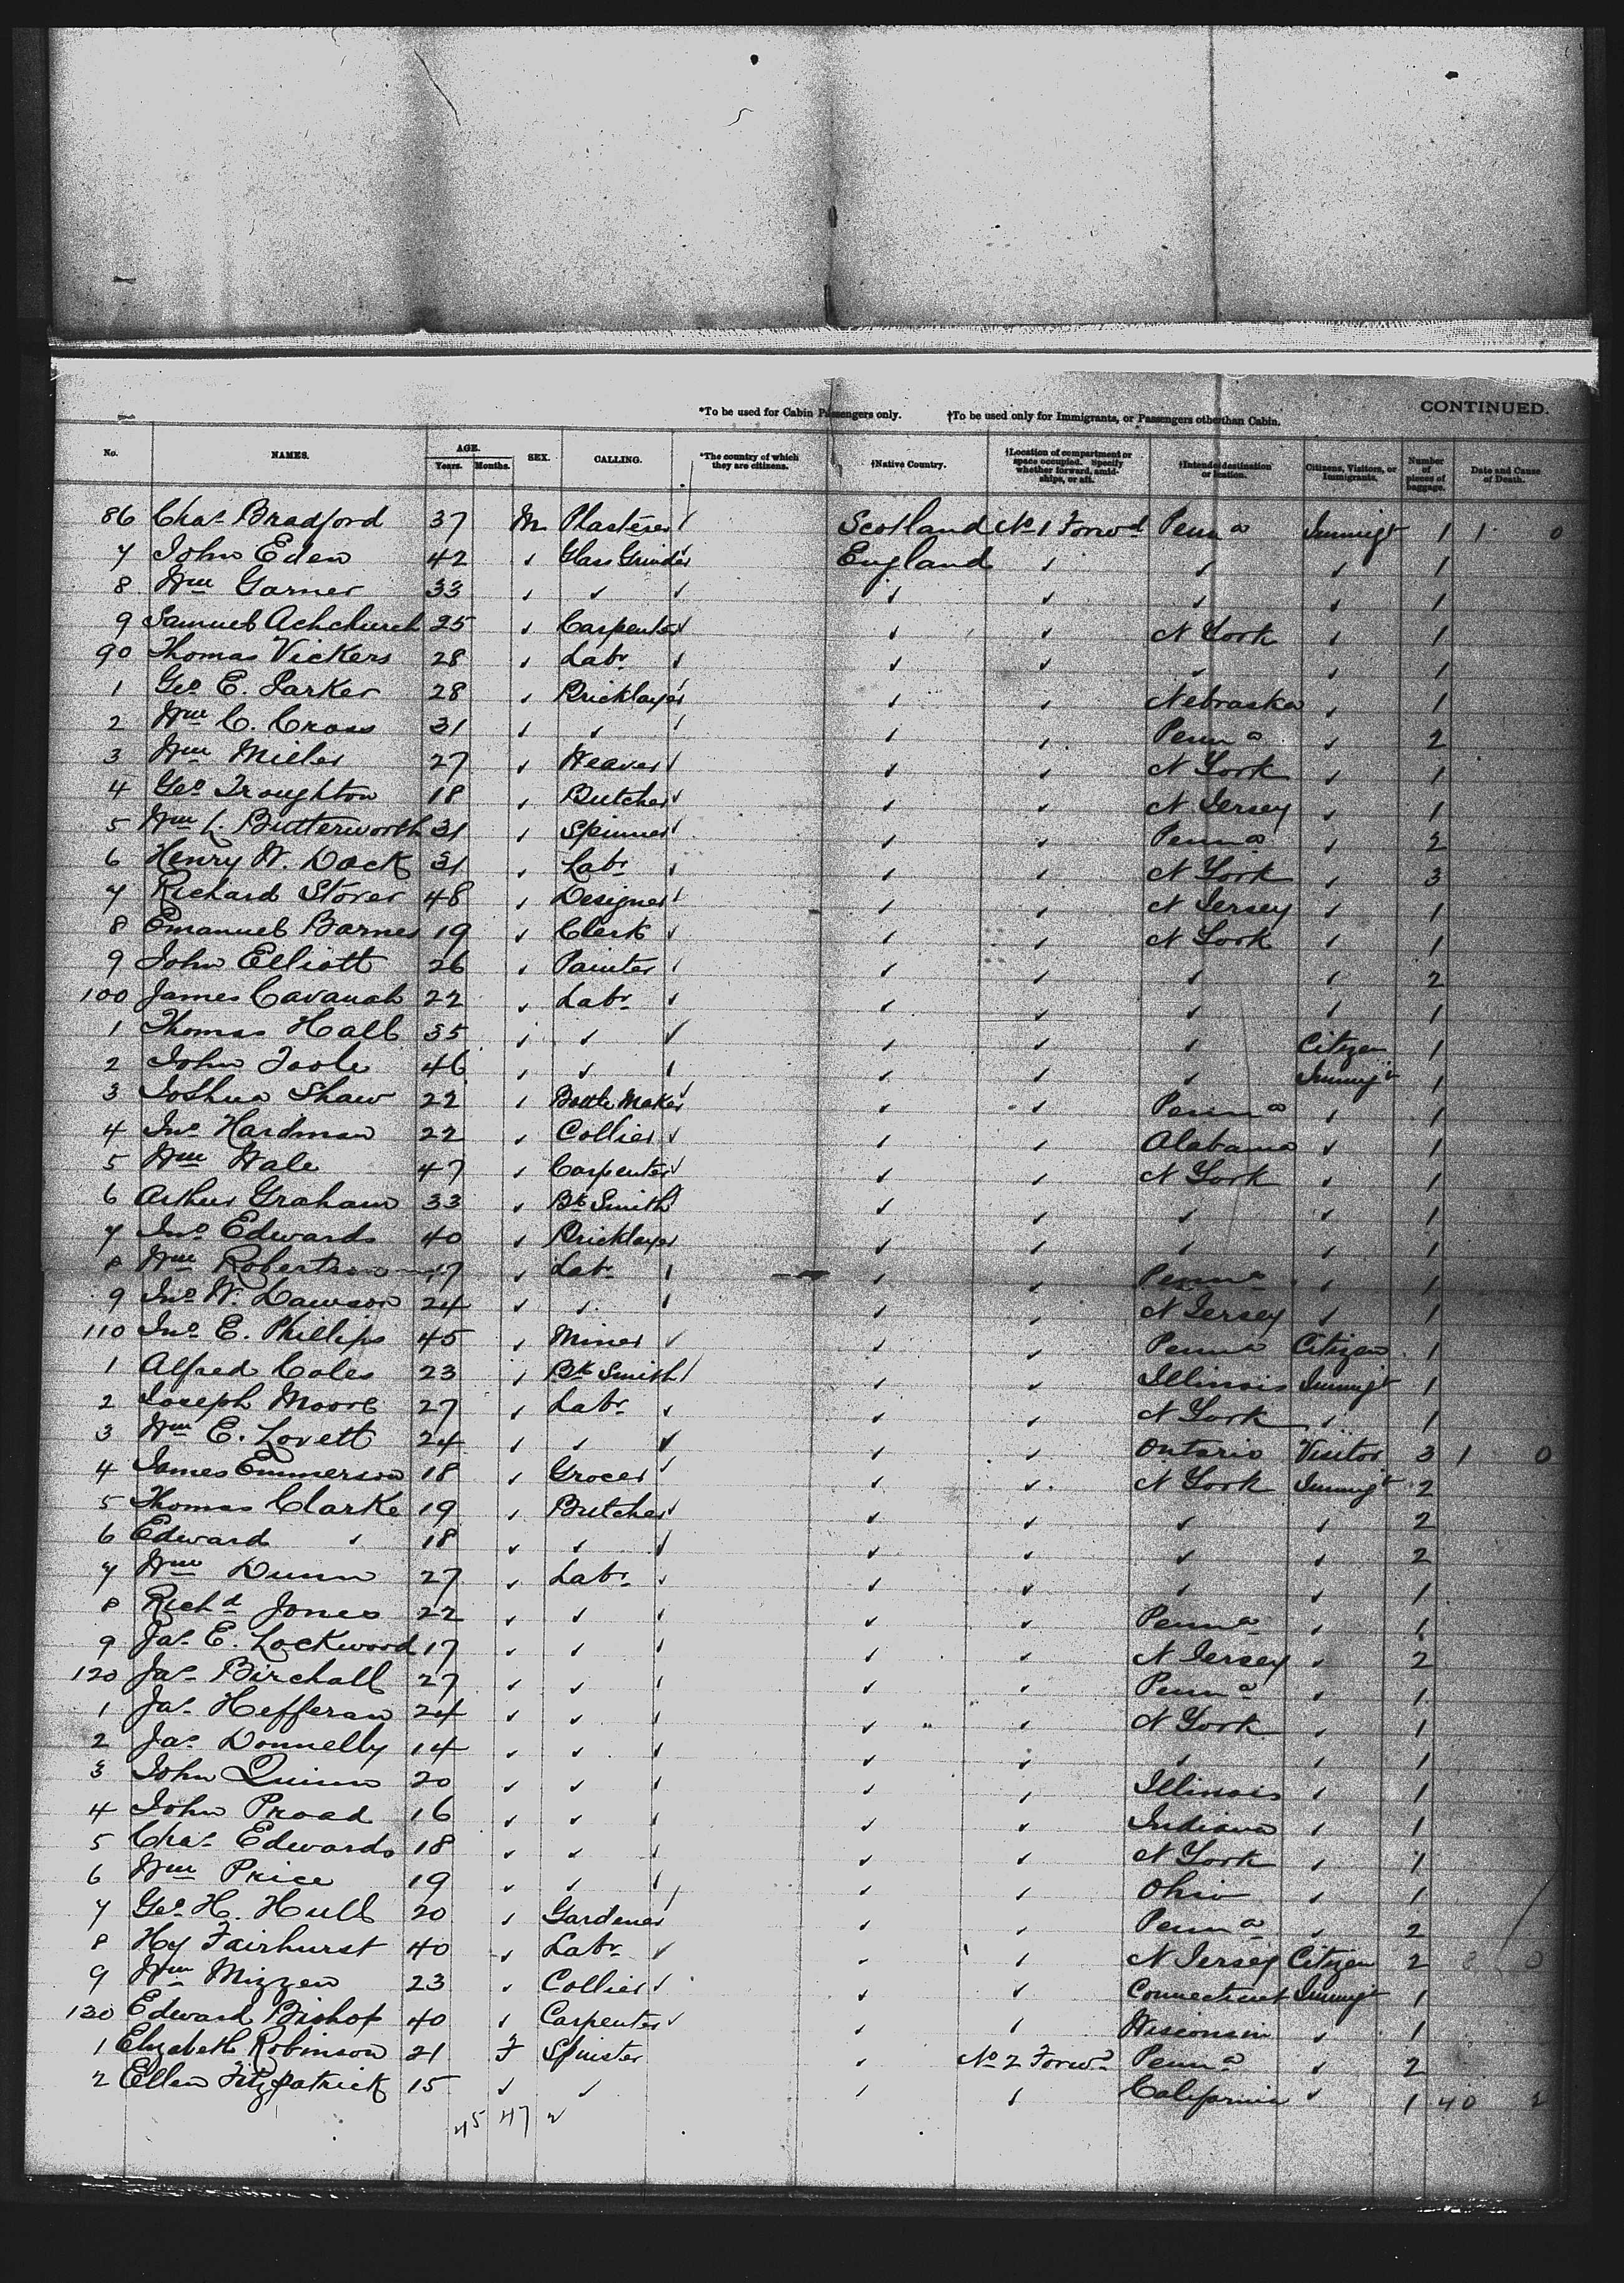 *To be used for Cabin Passengers only. †To be used only for Immigrants, or Passengers other than Cabin. CONTINUED.
No. NAMES. AGE. Years. Months. SEX. CALLING. *The country of which they are citizens. †Native Country. †Location of compartment or space occupied. Specify whether forward, amidships, or aft. †Intended destination or location. Citizens, Visitors, or Immigrants. Number of pieces of baggage. Date and Cause of Death.
86 Chas Bradford 37 M Plasterer Scotland No 1 Forwd Penna Immigt 1 1 0
7 John Eden 42 ✓ Glass Grinder England ✓ ✓ ✓ 1
8 Wm Garner 33 ✓ ✓ ✓ ✓ ✓ ✓ 1
9 Samuel Achchurch 25 ✓ Carpenter ✓ ✓ N York ✓ 1
90 Thomas Vickers 28 ✓ Labr ✓ ✓ ✓ ✓ 1
1 Geo E. Parker 28 ✓ Bricklayer ✓ ✓ Nebraska ✓ 1
2 Wm C. Cross 31 ✓ ✓ ✓ ✓ Penna ✓ 2
3 Wm Miller 27 ✓ Weaver ✓ ✓ N York ✓ 1
4 Geo Troughton 18 ✓ Butcher ✓ ✓ N Jersey ✓ 1
5 Wm L. Butterworth 31 ✓ Spinner ✓ ✓ Penna ✓ 2
6 Henry W. Dack 31 ✓ Labr ✓ ✓ N York ✓ 3
7 Richard Storer 48 ✓ Designer ✓ ✓ N Jersey ✓ 1
8 Emanuel Barnes 19 ✓ Clerk ✓ ✓ N York ✓ 1
9 John Elliott 26 ✓ Painter ✓ ✓ ✓ ✓ 2
100 James Cavanah 22 ✓ Labr ✓ ✓ ✓ ✓ 1
1 Thomas Hall 35 ✓ ✓ ✓ ✓ ✓ Citizen 1
2 John Toole 46 ✓ ✓ ✓ ✓ ✓ Immigt 1
3 Joshua Shaw 22 ✓ Bottle Maker ✓ ✓ Penna ✓ 1
4 Jno Hardman 22 ✓ Collier ✓ ✓ Alabama ✓ 1
5 Wm Wale 47 ✓ Carpenter ✓ ✓ N York ✓ 1
6 Arthur Graham 33 ✓ Bk Smith ✓ ✓ ✓ ✓ 1
7 Jno Edwards 40 ✓ Bricklayer ✓ ✓ ✓ ✓ 1
8 Wm Robertson 17 ✓ Labr ✓ ✓ Penna ✓ 1
9 Jno W. Dawson 24 ✓ ✓ ✓ ✓ N Jersey ✓ 1
110 Jno E. Phillips 45 ✓ Miner ✓ ✓ Penna Citizen 1
1 Alfred Coles 23 ✓ Bk Smith ✓ ✓ Illinois Immigt 1
2 Joseph Moore 27 ✓ Labr ✓ ✓ N York ✓ 1
3 Wm E. Lovett 24 ✓ ✓ ✓ ✓ Ontario Visitor 3 1 0
4 James Emmerson 18 ✓ Grocer ✓ ✓ N York Immigt 2
5 Thomas Clarke 19 ✓ Butcher ✓ ✓ ✓ ✓ 2
6 Edward ✓ 18 ✓ ✓ ✓ ✓ ✓ ✓ 2
7 Wm Dunn 27 ✓ Labr ✓ ✓ ✓ ✓ 1
8 Richd Jones 22 ✓ ✓ ✓ ✓ Penna ✓ 1
9 Jas E. Lockwood 17 ✓ ✓ ✓ ✓ N Jersey ✓ 2
120 Jas Birchall 27 ✓ ✓ ✓ ✓ Penna ✓ 1
1 Jas Hefferan 24 ✓ ✓ ✓ ✓ N York ✓ 1
2 Jas Donnelly 14 ✓ ✓ ✓ ✓ ✓ ✓ 1
3 John Quinn 20 ✓ ✓ ✓ ✓ Illinois ✓ 1
4 John Proad 16 ✓ ✓ ✓ ✓ Indiana ✓ 1
5 Chas Edwards 18 ✓ ✓ ✓ ✓ N York ✓ 1
6 Wm Price 19 ✓ ✓ ✓ ✓ Ohio ✓ 1
7 Geo H. Hull 20 ✓ Gardener ✓ ✓ Penna ✓ 2
8 Hy Fairhurst 40 ✓ Labr ✓ ✓ N Jersey Citizen 2 0
9 Wm Mizzen 23 ✓ Collier ✓ ✓ Connecticut Immigt 1
130 Edward Bishop 40 ✓ Carpenter ✓ ✓ Wisconsin ✓ 1
1 Elizabeth Robinson 21 F Spinster ✓ No 2 Forwd Penna ✓ 2
2 Ellen Fitzpatrick 15 ✓ ✓ ✓ ✓ California ✓ 1 40 2
45 47 2